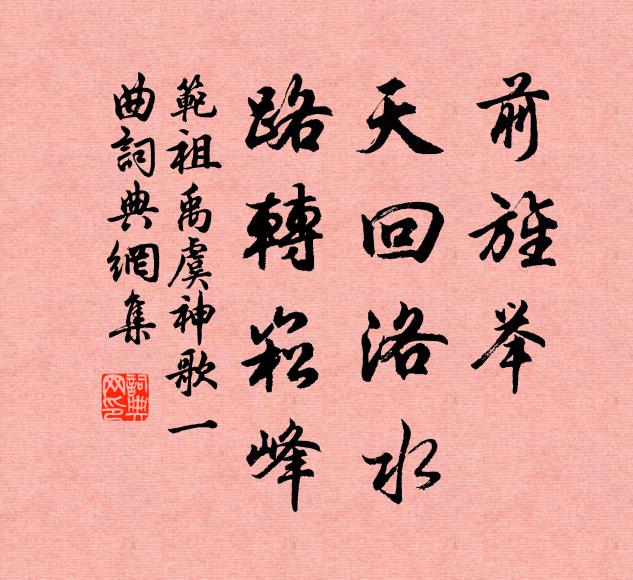 前旌举
天回洛水
路轉崧峰
範祖禹虞神歌一
曲詞典網集
詞典网印